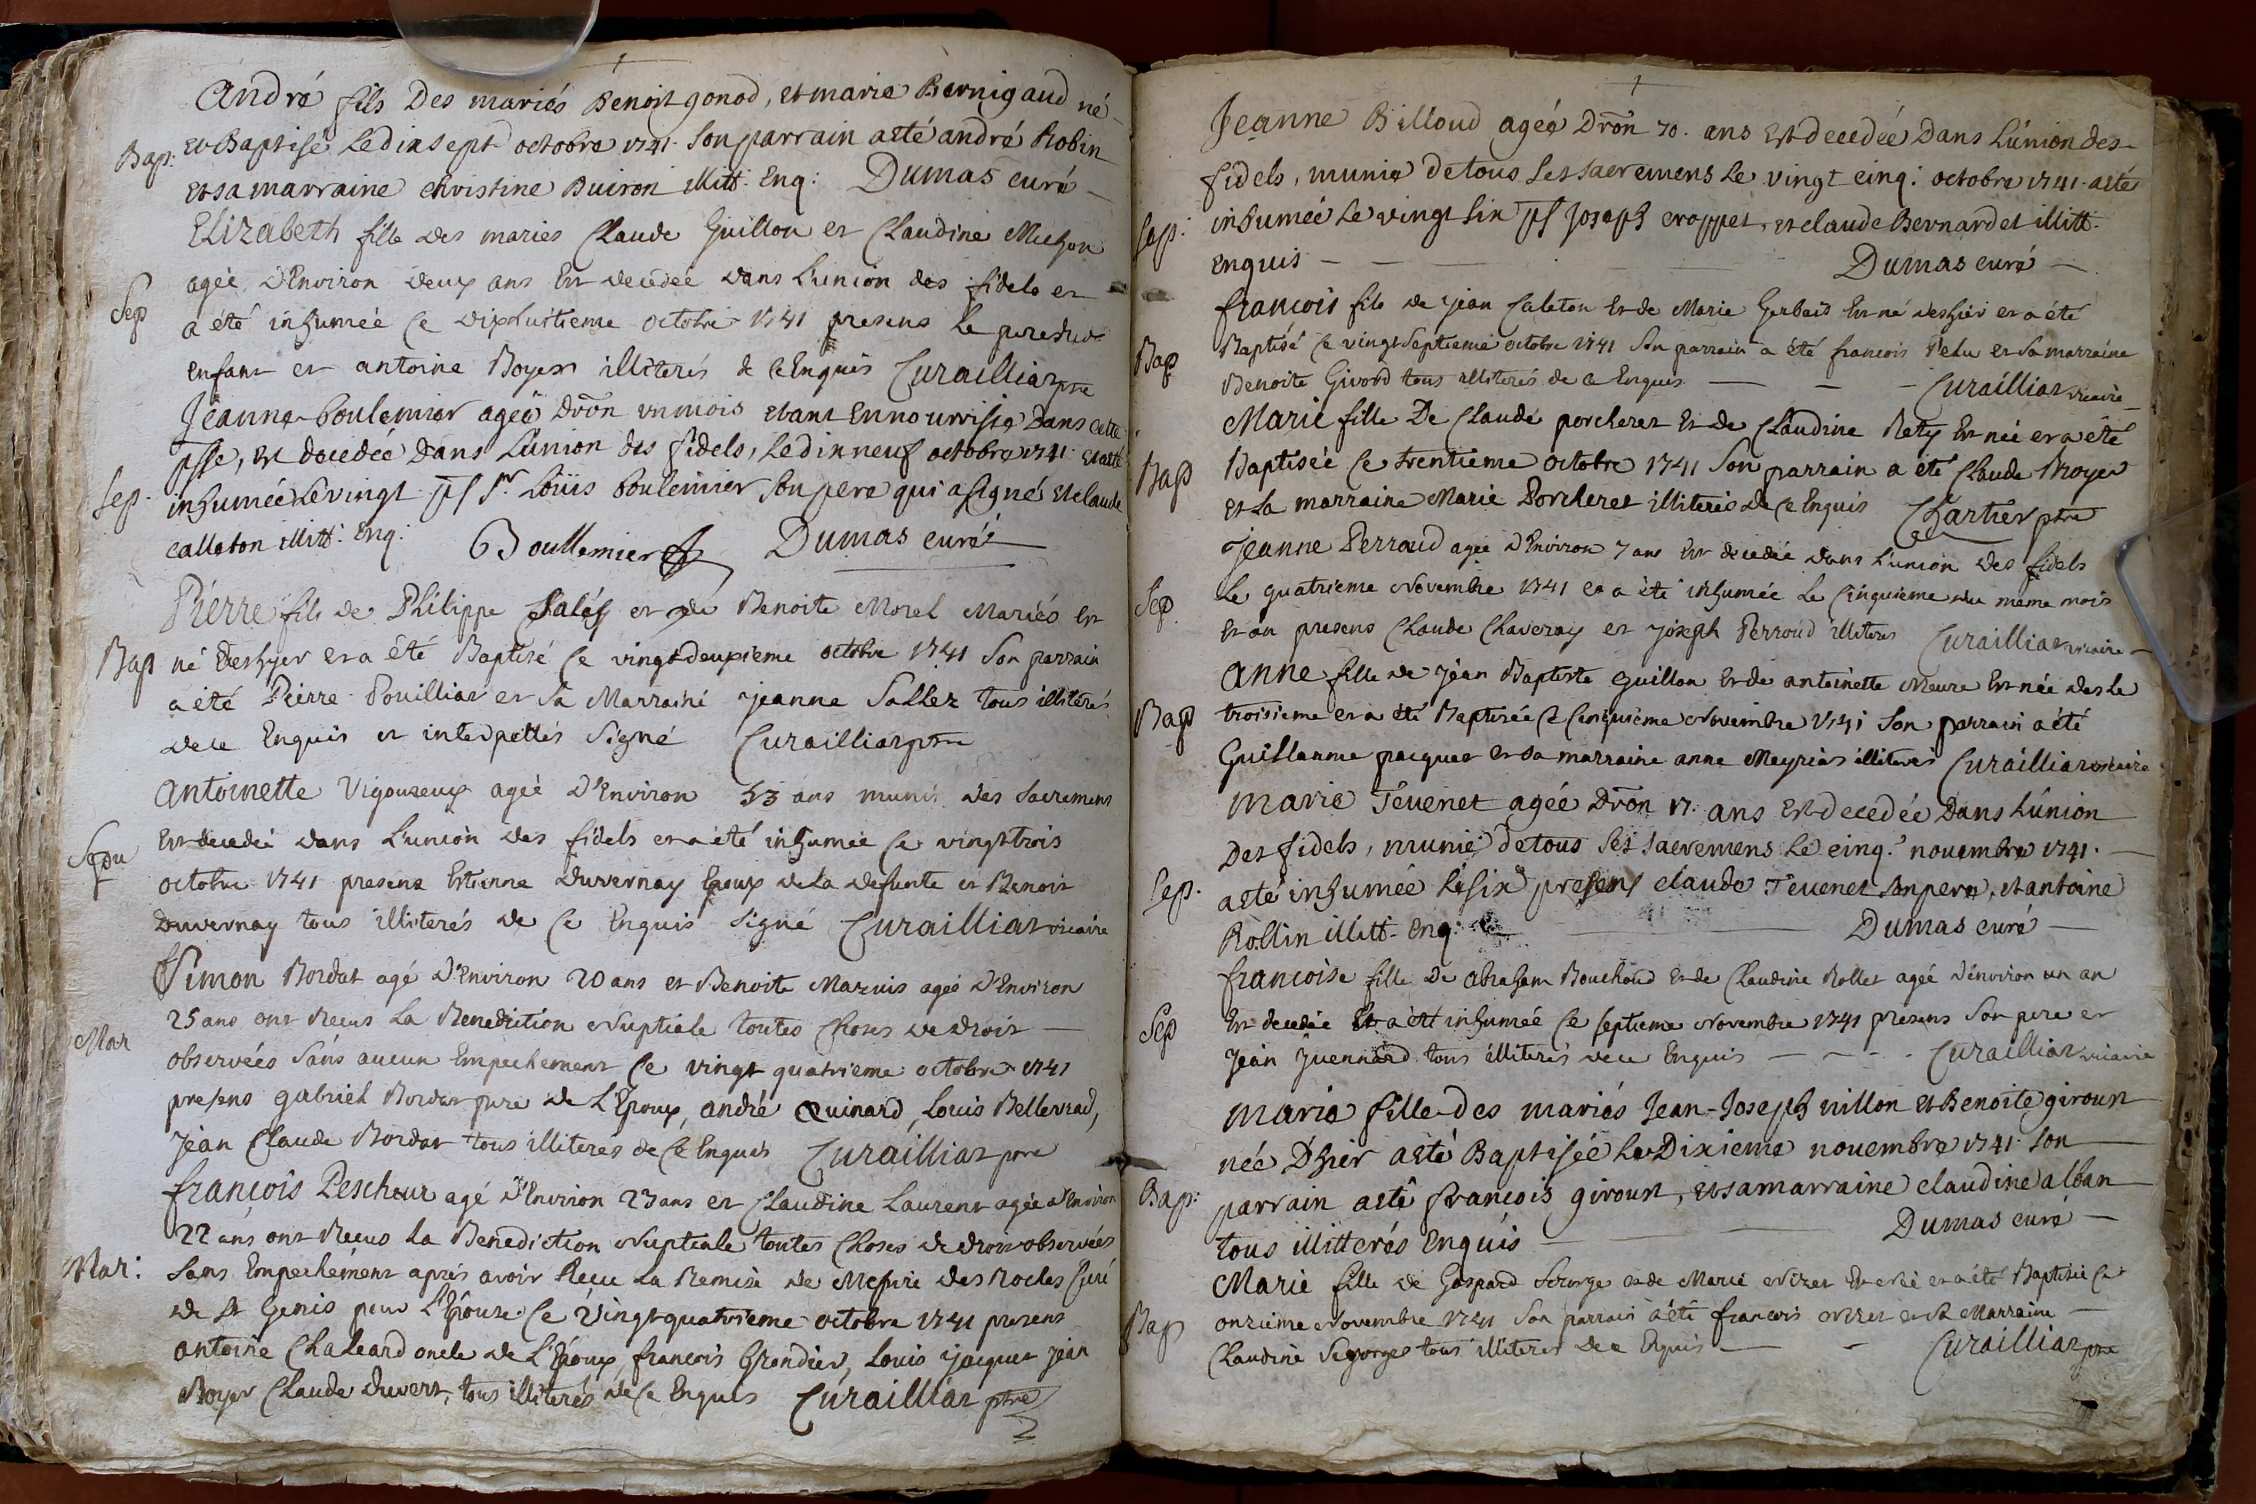 André fils Des mariés Benoit gonod, et marie Bernigaud né
Bap: et Baptisé Le dix sept octobre 1741. Son parrain a eté andré Robin
et sa marraine christine Buiron illitt. Enq: Dumas curé
ELizabeth fille des maries Claude Guillon et Claudine Michon
agée d'Environ deux ans Est decedée dans L'union des fidels et
Sep a été inhumée Ce dixhuitieme octobre 1741 presens le pere du
enfant et antoine Boyer illiterés de ce Enquis Curailliat ptre
Jeanne boulemier agée Dron un mois etant En nourrisse Dans cette
psse, est decedée Dans L'union des fidels, Le dix neuf octobre 1741. et a eté
Sep. inhumée Le vingt. ps Sr. Loüis boulemier Son pere qui a signé et claude
callaton illitt. Enq: Boullemier Dumas curé
Pierre fils de Philippe Saléy et de Benoite Morel Mariés est
Bap né deshyer et a été Baptisé Ce vingtdeuxieme octobre 1741 Son parrain
a été Pierre Pouilliat et Sa Marraine jeanne Sallez tous illiterés
de ce Enquis et interpellés Signé Curailliat ptre
antoinette Vigoureux agée d'Environ 53 ans munis des Sacremens
Sepu Est decedée dans L'union des fidels et a été inhumée Ce vingttrois
octobre 1741 presens Estienne duvernay Epoux de La defunte et Benoit
Duvernay tous illiterés de Ce Enquis Signé Curailliat vicaire
Simon Bordat agé d'Environ 20 ans et Benoite Maruis agée d'Environ
25 ans ont Recus La Benediction Nuptiale toutes Choses de droit
Mar observées Sans aucun Empechement Ce vingt quatrieme octobre 1741
presens gabriel Bordat pere de L'Epoux, andré Quinard, Louis Belleviad,
Jean Claude Bordat tous illiterés de Ce Enquis Curailliat ptre
françois Pescheur agé d'Environ 23 ans et Claudine Laurent agée d'Environ
22 ans ont Recus La Benediction Nuptiale toutes Choses de droit observées
Mar: Sans Empechement aprés avoir Recu La Remise de Messire des Roches Curé
de St Genis pour L'Epouse Ce vingtquatrieme octobre 1741 presens
antoine Chaleard oncle de L'Epoux, francois Grandier, Louis jacquet jean
Boyer Claude duvert, tous illiterés de Ce Enquis Curailliat ptre
Jeanne Billoud agée Dron 70. ans Est decedée Dans L'union des
fidels, munie de tous Ses sacremens Le vingt cinq: octobre 1741. a eté
Sep: inhumée Le vingt Six ps Joseph croppet, et claude Bernardet illitt.
Enquis Dumas curé
francois fils de jean Calaton Et de Marie Gerbaud Est né deshier et a été
Bap Baptisé Ce vingtSeptieme octobre 1741 Son parrain a été francois Pelu et Sa marraine
Benoite Givord tous illiterés de Ce Enquis Curailliat vicaire
Marie fille De Claude porcheret Et de Claudine Rety Est née et a été
Bap Baptisée Ce trentieme octobre 1741 Son parrain a été Claude Moyer
et Sa marraine Marie Porcheret illiterés de Ce Enquis Chartier ptre
Jeanne Perroud agée d'Environ 7 ans Est decedée dans L'union des fidels
Sep Le quatrieme Novembre 1741 et a été inhumée Le Cinquieme du meme mois
Et an presens Claude Chaveray et joseph Perroud illiterés Curailliat vicaire
anne fille de jean Baptiste Guillon Et de antoinette Meure Est née des Le
Bap troisieme et a été Baptisée Ce Cinquieme Novembre 1741 Son parrain a été
Guillaume pacquet et Sa marraine anne Meyrias illiterés Curailliat vicaire
marie Tevenet agée Dron 17. ans est decedée Dans L'union
Des fidels, munie de tous Ses sacremens Le cinq: novembre 1741.
Sep. a eté inhumée Le Six presens claude Tevenet Son pere, et antoine
Rollin illitt. Enq: Dumas curé
francoise fille De abraham Bouchard Et de Claudine Rollet agée d'environ un an
Sep Est decedée Et a été inhumée Ce septieme Novembre 1741 presens Son pere et
Jean Juennard tous illiterés de ce Enquis Curailliat vicaire
marie fille des mariés Jean-Joseph nillon et Benoite girout
née D'hier a eté Baptisée Le Dixieme novembre 1741. Son
Bap: parrain a eté françois girout, et sa marraine claudine alban
tous illitterés Enquis Dumas curé
Marie fille de Gaspard George et de Marie Nizet Est née et a été Baptisée Ce
Bap onzieme Novembre 1741 Son parrain a été francois Nizet et Sa Marraine
Claudine George tous illiterés de ce Enquis Curailliat ptre